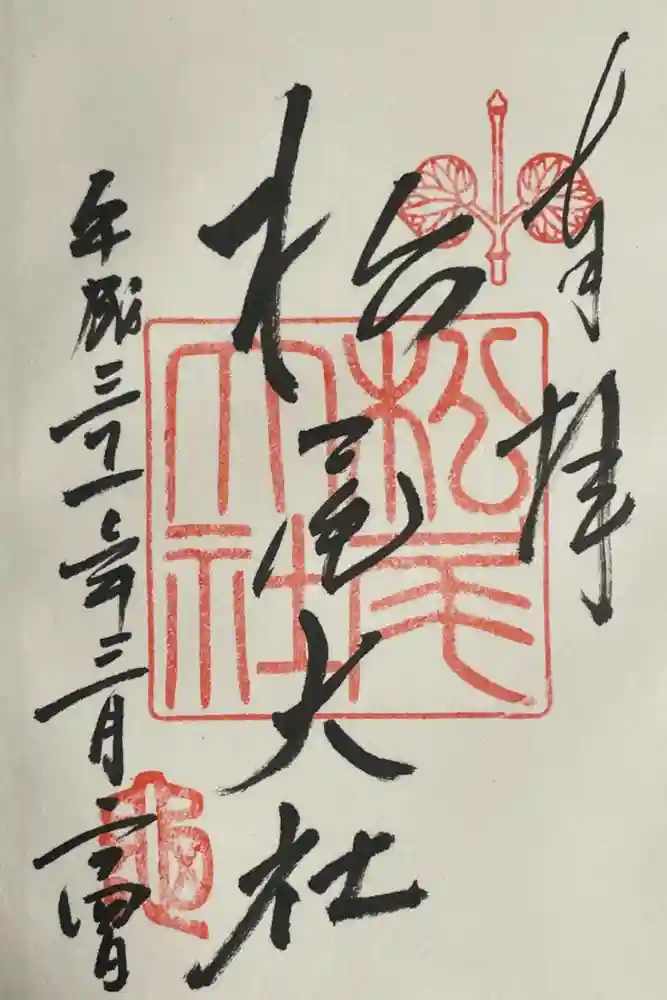 奉拝
松尾大社
平成三十一年三月
松尾
大社